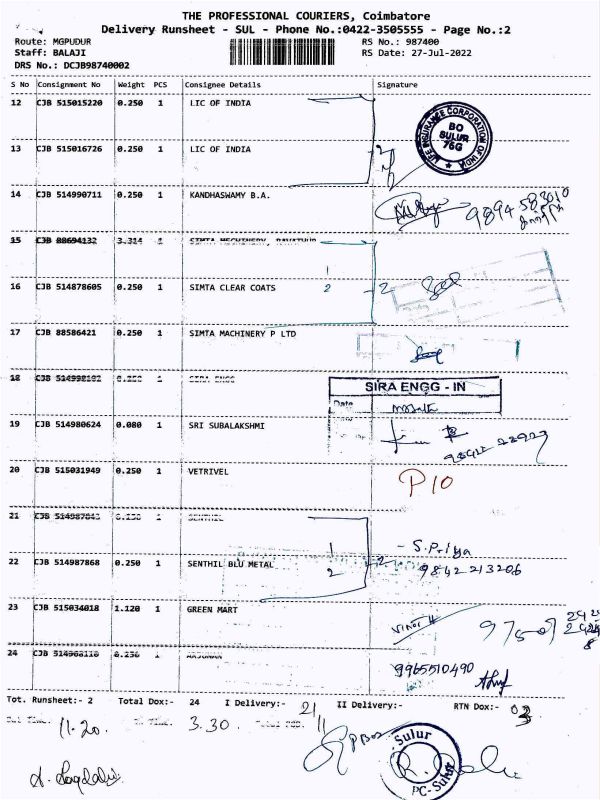 THE PROFESSIONAL COURIERS, Coimbatore
Delivery Runsheet - SUL - Phone No.:0422-3505555 - Page No.:2
Route: MGPUDUR RS No.: 987400
Staff: BALAJI RS Date: 27-Jul-2022
DRS No.: DCJB98740002
S No Consignment No Weight PCS Consignee Details Signature
12 CJB 515015220 0.250 1 LIC OF INDIA
LIFE INSURANCE CORPORATION OF INDIA
BO
SULUR
76G
13 CJB 515016726 0.250 1 LIC OF INDIA 2
14 CJB 514990711 0.250 1 KANDHASWAMY B.A.
15 CJB 88694132 3.314 1 SIMTA
1
16 CJB 514878605 0.250 1 SIMTA CLEAR COATS 2 2
17 CJB 88586421 0.250 1 SIMTA MACHINERY P LTD
18 CJB 1 SIRA ENGG
SIRA ENGG - IN
Date
19 CJB 514980624 0.080 1 SRI SUBALAKSHMI
20 CJB 515031949 0.250 1 VETRIVEL P10
21 CJB 1 SENTHIL
1 S.Priya
22 CJB 514987868 0.250 1 SENTHIL BLU METAL 2 2 9842213206
23 CJB 515034018 1.120 1 GREEN MART
24 CJB 1 9965510490
Tot. Runsheet:- 2 Total Dox:- 24 I Delivery:- 21 II Delivery:- RTN Dox:- 03
11.20 3.30 11
Sulur
PC-Sulur